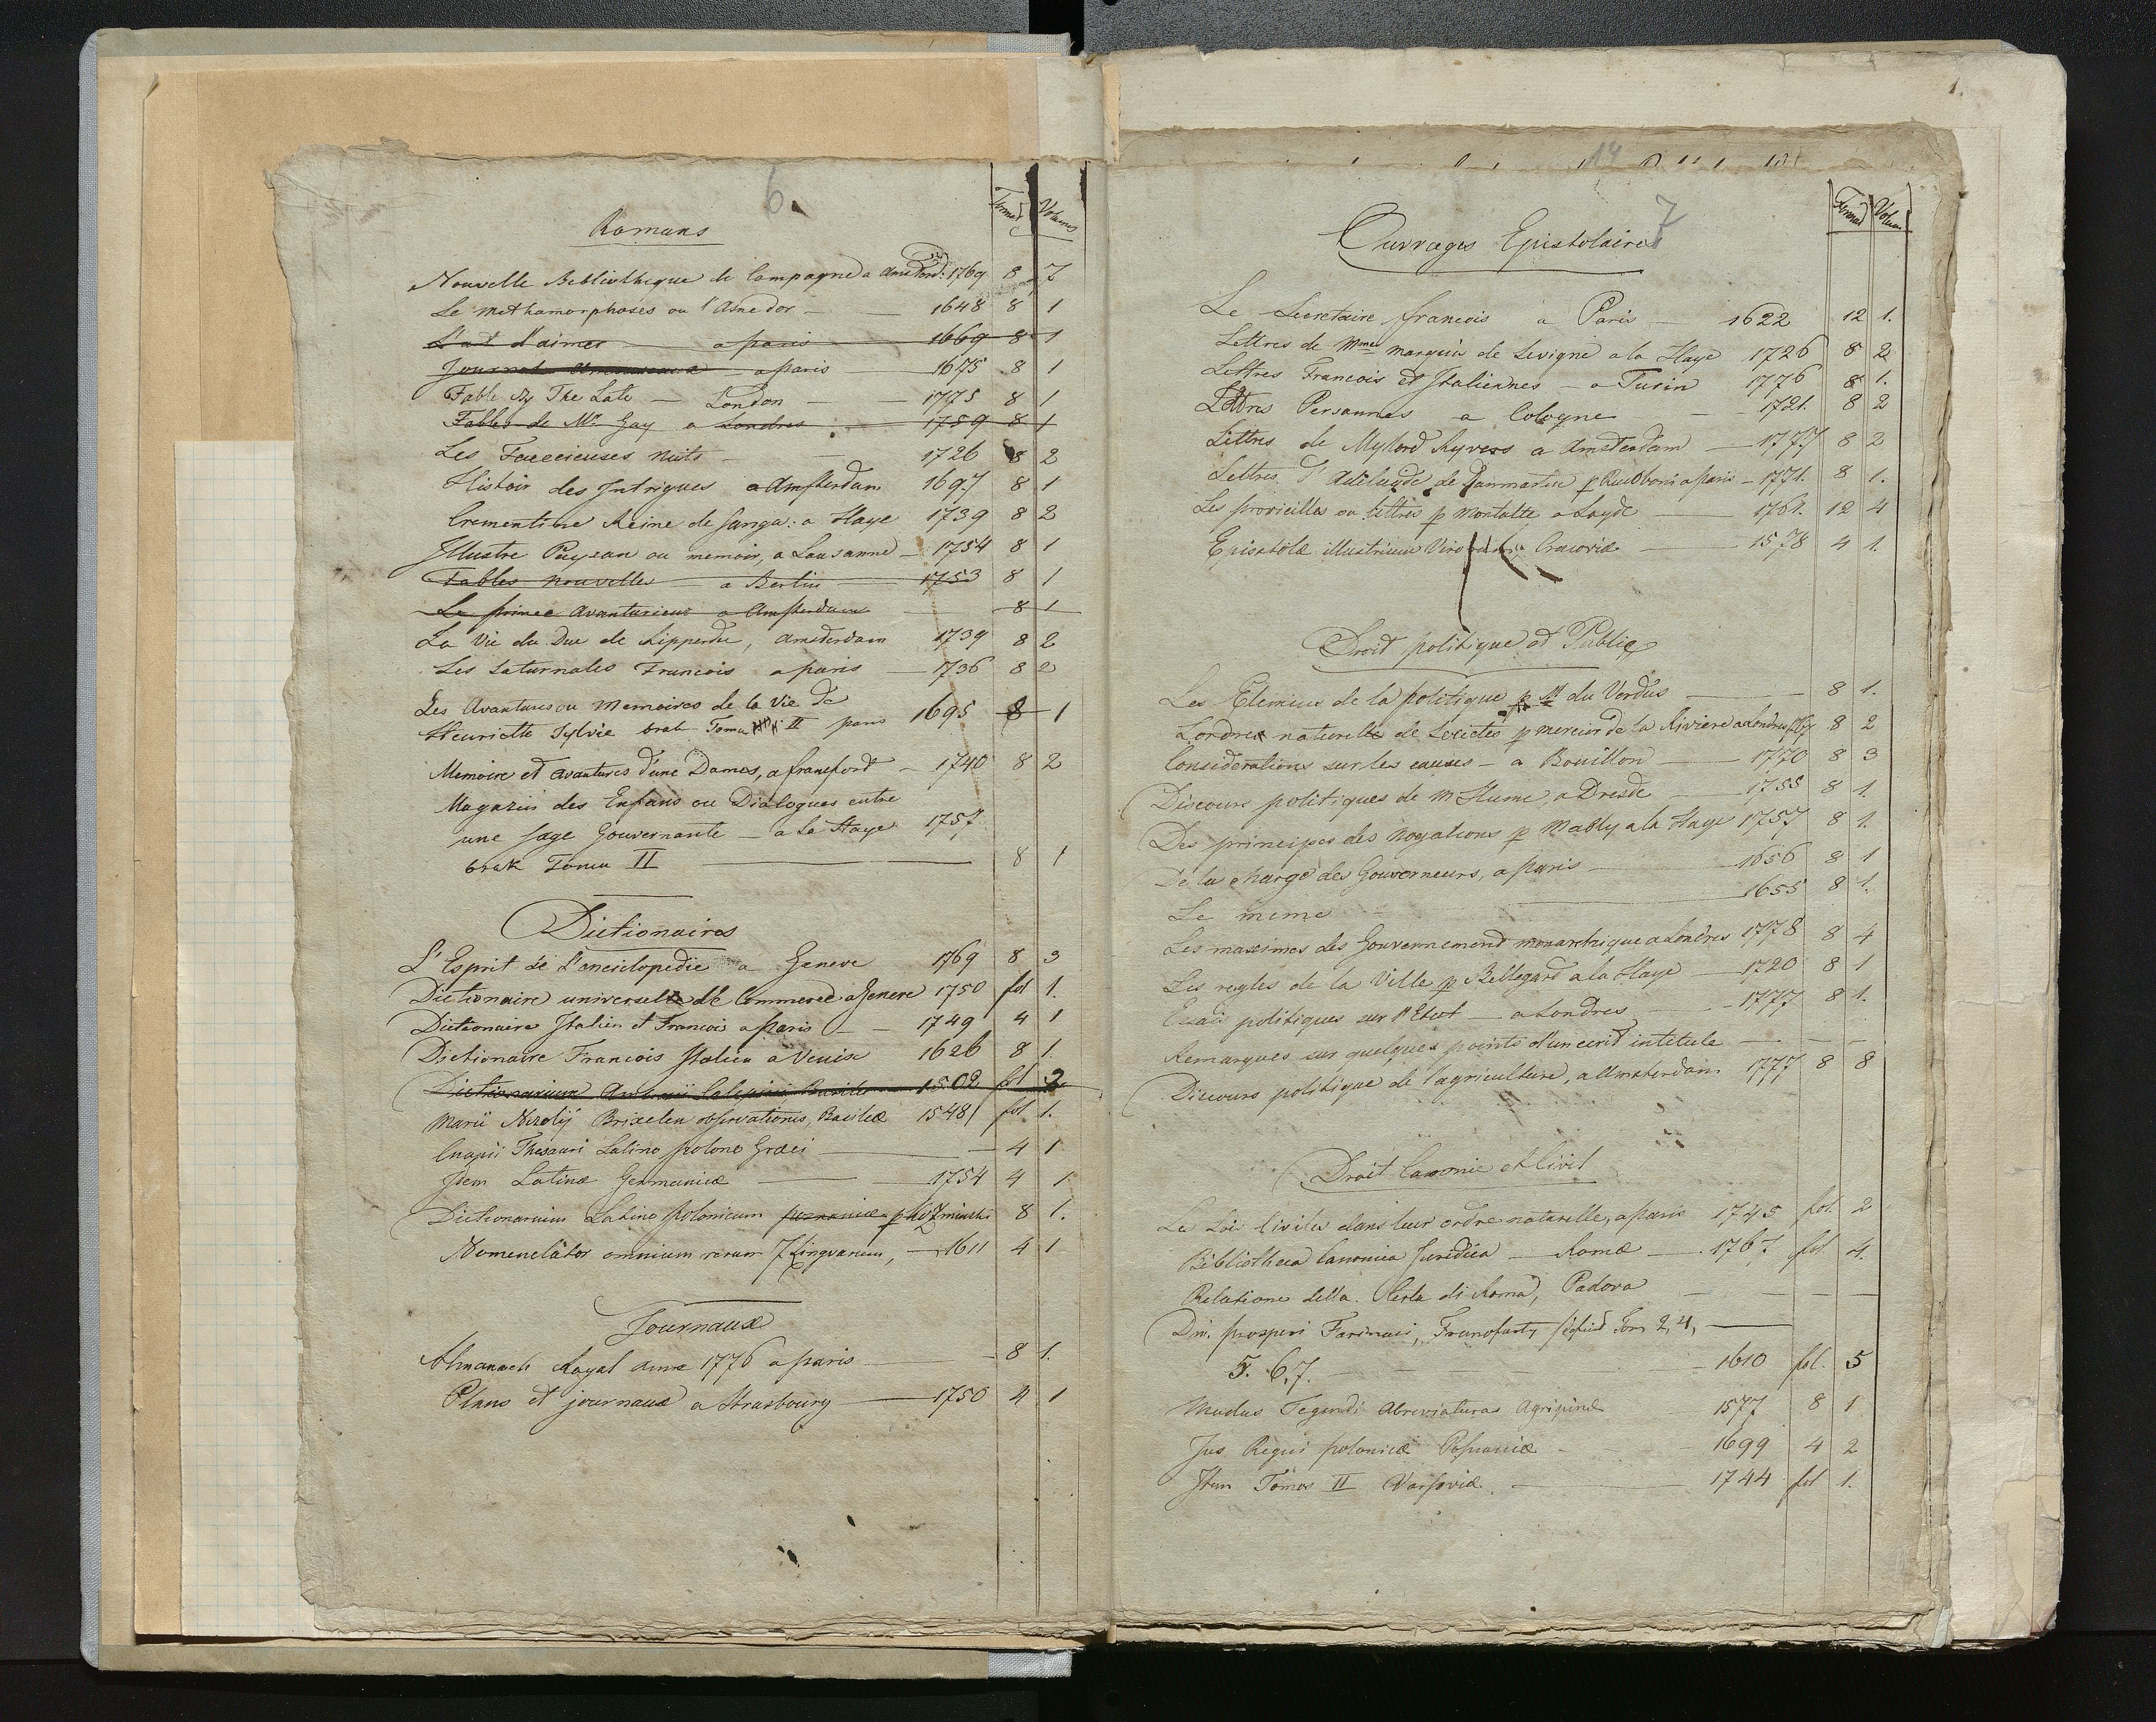 6.
Romans
Format Volumes
Nouvelle Bibliotheque de Campagne a Amsterd: 1769 8 7
Le methamorphoses ou l'Asne dor — 1648 8 1
L'art d'aimer — a paris — 1669 8 1
Journal — a paris — 1675 8 1
Fable By The Late — London — 1775 8 1
Fables de Mr Gay a Londres — 1759 8 1
Les Faccicuses Nuits — 1726 8 2
Histoir des Intrigues a Amsterdam 1697 8 1
Crementine Reine de Sanga: a Haye 1739 8 2
Illustre Paysan ou memoir, a Lausanne — 1754 8 1
Fables nouvelles — a Berlin — 1753 8 1
Le prince Avanturieur a Amsterdam 8 1
La Vie du Duc de Ripperda, Amsterdam 1739 8 2
Les Saturnales Francois a paris — 1736 8 2
Les Avantures ou Memoires de la Vie de
Henriette Sylvie brak Tomu II paris 1695 8 1
Memoire et avantures d'une Dames, a francfort — 1740 8 2
Magazin des Enfans ou Dialogues entre
une sage Gouvernante — a La Haye 1757
brak Tomu II — 8 1
Dictionaires
L'Esprit de l'enciclopedie a Geneve 1769 8 3
Dictionaire universel de Commerce a Geneve 1750 fol 1.
Dictionaire Italien et Francois a paris — 1749 4 1
Dictionaire Francois Italien a Venise 1626 8 1.
Dictionarium Calepini Basileae 1502 fol 2
Marii Nizolij Brixelen observationis, Basileæ 1548 fol 1.
Cnapii Thesauri Latino polono Græci — 4 1
Idem Latinæ Germanicæ — 1754 4 1
Dictionarium Latino polonicum posnaniæ 8 1.
Nomenclator omnium rerum 7 Lingvarum, — 1611 4 1
Journaux
Almanach Royal Anne 1776 a paris — 8 1.
Plans et journaux a Strasbourg — 1750 4 1
1.
14
7
Ouvrages Epistolaires
Format Volum
Le Secretaire francois a Paris — 1622 12 1.
Lettres de Mme marquis de Sevigne a la Haye 1726 8 2
Lettres Francois et Italiennes — a Turin 1776 8 1.
Lettres Persannes a Cologne — 1721. 8 2
Lettres de Mylord Ryvers a Amsterdam — 1777 8 2
Lettres d'Adelayde de Dammartin p Riccoboni a paris — 1771. 8 1.
Les provicilles ou Lettres p Montalte a Layde — 1761. 12 4
Epistolæ illustrium Virorum Cracoviæ — 1578 4 1.
Droit politique et Public
Les Elemins de la politique p Mr du Verdus — 8 1.
L'ordre naturelle de Societes p mercier de la Riviere a Londres 1767 8 2
Considerations sur les causes — a Bouillon — 1770 8 3
Discours politiques de M Hume, a Dresde — 1755 8 1.
Des principes des Nogations p Mably a la Haye 1757 8 1.
De la charge des Gouverneurs, a paris — 1656 8 1
Le meme — 1655 8 1.
Les maximes des Gouvernement monarchique a Londres 1778 8 4
Les regles de la Ville p Bellegard a la Haye — 1720 8 1
Essai politiques sur l'Etat — a Londres — 1777 8 1.
Remarques sur quelques points d'un ecrit intitule — — —
Discours politique de l'agriculture, a Amsterdam 1777 8 8
Droit Canonic et Civil
Les Loix Civiles dans leur ordre naturelle, a paris 1745 fol. 2
Bibliotheca Canonica Juridica — Romæ — 1767 fol 4.
Relatione della Corte di Roma, Padova — — —
Dni. prosperi Farinaci, Francofurti, Tom 2, 4, —
5. 6. 7. — 1610 fol. 5
Modus Legendi Abreviaturas Agripinæ 1577 8 1
Jus Regni poloniæ Posnaniæ — 1699 4 2
Item Tomos II Varsoviæ — 1744 fol 1.